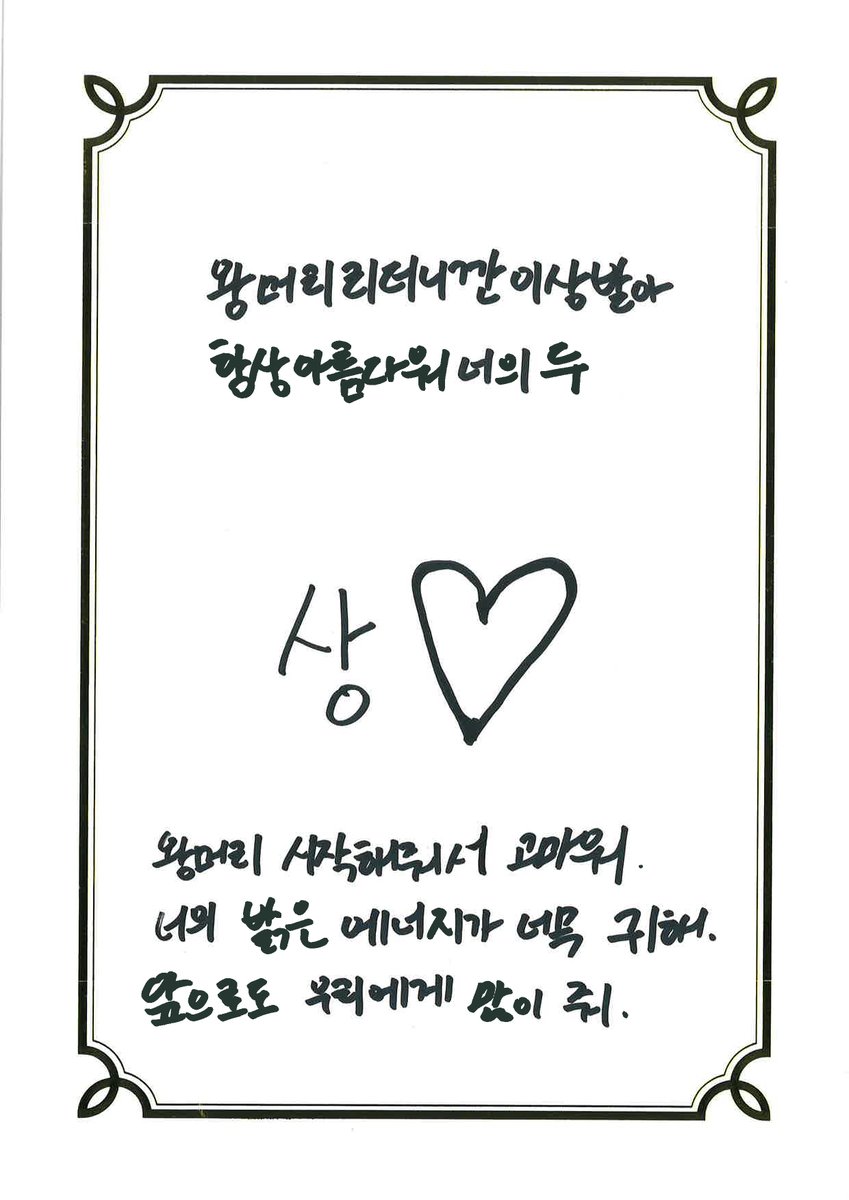 왕머리리더니깐이상받아
항상아름다워너의두
상
왕머리 시작해줘서 고마워.
너의 밝은 에너지가 너무 귀해.
앞으로도 우리에게 많이 줘.